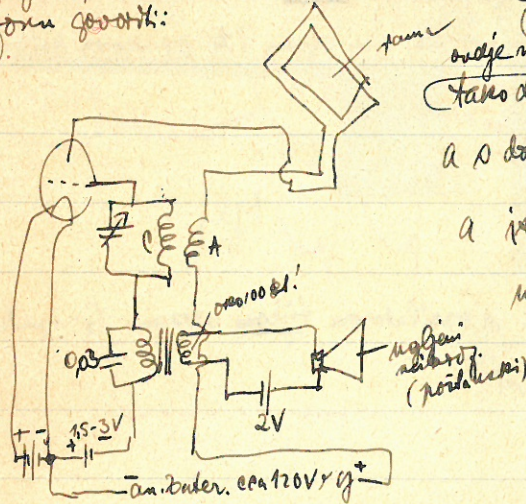 govoriti:
rama
ovdje
tako d
a s do
a
C
A
oko 100 Ω!
0,03
ugljeni
mikrof.
(poštanski)
2V
+ -
+ 1,5-3V -
- an. bater. cca 120V +